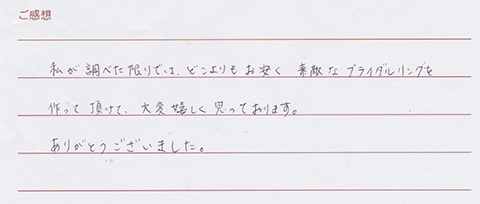 ご感想
私が調べた限りでは、どこよりもお安く 素敵なブライダルリングを
作って頂けて、大変嬉しく思っております。
ありがとうございました。